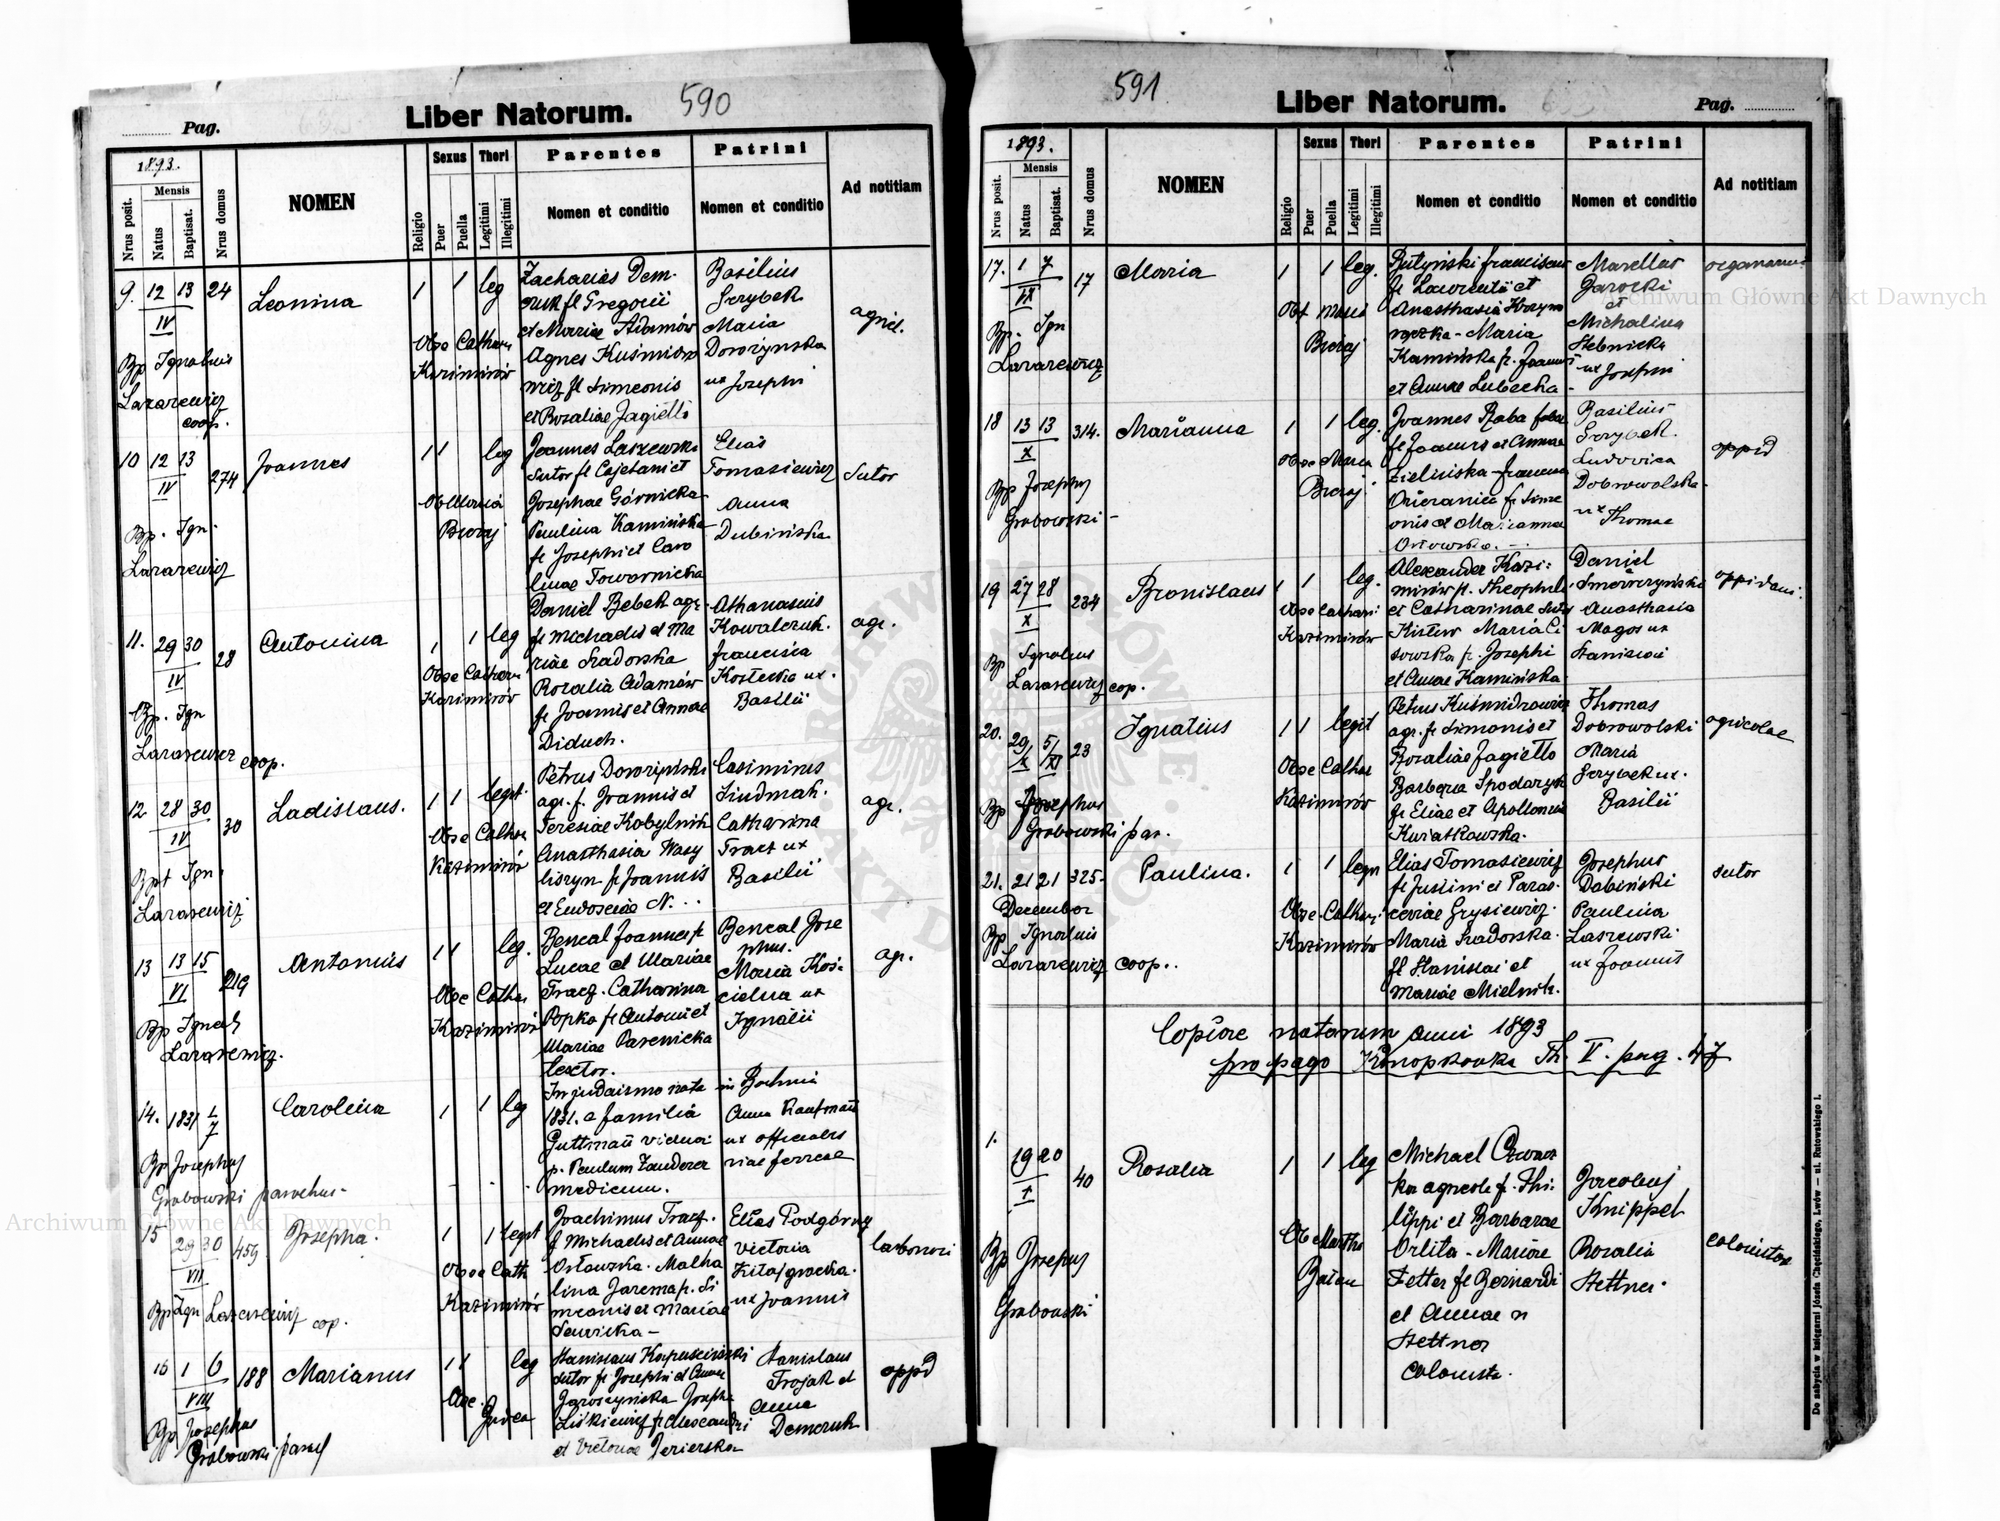 590
Pag.
Liber Natorum.
1893.
Nrus posit.
Mensis
Natus
Baptisat.
Nrus domus
NOMEN
Religio
Sexus
Puer
Puella
Thori
Legitimi
Illegitimi
Parentes
Nomen et conditio
Patrini
Nomen et conditio
Ad notitiam
9. 12 13 24 Leonina 1 1 leg
IV
Zacharias Dem-
czuk fl Gregorii
et Mariae Adamów
Agnes Kuśmidro
wicz fl Simeonis
et Rosaliae Jagiełło
Basilius
Grzybek
Maria
Dovożynska
ux Josephi
agricl.
Obse Cathar
Kazimirów
Bp Ignatius
Lazarewicz
coop.
10 12 13 274 Joannes 1 1 leg
IV
Joannes Laszewski
Sutor fl Cajetani et
Josephae Górnicka
Paulina Kamińska
fl Josephi et Caro
linae Towarnicka
Elias
Tomasiewicz
Anna
Dubińska
Sutor
Ob Maria
Bieraj
Bp. Ign.
Lazarewicz
11. 29 30 28 Antonina 1 1 leg
IV
Daniel Bebek agr.
fl Michaelis et Ma
riae Sradowska
Rozalia Adamów
fl Joannis et Annae
Diduch.
Athanasius
Kowalczuk.
Francisca
Kostecka ux.
Basilii
agr.
Obse Cathar
Kazimirów
Bp. Ign
Lazarewicz coop.
12 28 30 30 Ladislaus. 1 1 legit.
IV
Petrus Dovorzyński
agr. f. Joannis et
Teresiae Kobylnik
Anasthasia Wasy
liszyn fl Joannis
et Eudosciae N. ..
Casimirus
Sindmak.
Catharina
Tracz ux
Basilii
agr.
Obse Cathar
Kazimirów
Bpt Ign.
Lazarewicz
13 13 15 219 Antonius 1 1 leg.
VI
Bencal Joannes fl
Lucae et Mariae
Tracz. Catharina
Popko fl Antonii et
Mariae Parenicka
textor.
Bencal Jose
phus.
Maria Koś-
cielna ux
Ignatii
agr.
Obse Cathar
Kazimirów
Bp Ignatz
Lazarewicz.
14. 1831 Carolina 1 1 leg
In judaismo nata in Bochnia
1831. a familia
Guttman vidua
p. Paulum Zanderer
medicum.
Anna Kaufman
ux officialis
viae ferreae
Bp Josephus
Grabowski parochus.
15 29 30 459 Josepha. 1 1 legit
VII
Joachimus Tracz.
f Michaelis et Annae
Orłowska. Malha
lina Jarema fl. Si
meonis et Mariae
Sawicka -
Elias Podgórny
Victoria
ux Joannis
Obse Cath
Kazimirów
Bp Ign Lazarewicz cop.
16 1 6 188 Marianus 1 1 leg
VIII
Stanislaus Kapuściński
sutor fl Josephi et Annae
Jaroszyńska Josepha
Liśkiewicz fl Alexandri
et Victoriae Jezierska
Stanislaus
Trojak et
Anna
Demczuk
oppd
Bp Josephus
Grabowski paroch
591
Liber Natorum.
Pag.
1893.
Nrus posit.
Mensis
Natus
Baptisat.
Nrus domus
NOMEN
Religio
Sexus
Puer
Puella
Thori
Legitimi
Illegitimi
Parentes
Nomen et conditio
Patrini
Nomen et conditio
Ad notitiam
17. 1 7 17 Maria 1 1 leg.
Butyński Franciscus
fl Laurentii et
Anasthasia
Maria
Kamińska f. Joannis
et Annae Lubecka -
Marellus
Jarocki
et
Michalina
Stebnicka
ux Josephi
Obst Maria
Bieraj
Bp. Ign
Lazarewicz
18 13 13 314. Marianna 1 1 leg.
X
Joannes Raba faber
fl Joannis et Annae
Zielińska - Francisca
fl Sime
onis et Marianna
Orłowska. - -
Basilius
Grzybek.
Ludovica
Dobrowolska
ux Thomae
oppid
Obse Maria
Bieraj
Bp Josephus
Grabowski -
19 27 28 234 Bronislaus 1 1 leg.
X
Alexander Kazi-
mirów fl. Theophili
et Catharinae
Maria Ci
sowska fl. Josephi
et Annae Kamińska.
Daniel
Smereczyński
Anasthasia
Magos ux
Stanislai
oppidani.
Obse Cathari
Kazimirów
Bp Ignatius
Lazarewicz cop.
20. 29/X 5/XI 23 Ignatius 1 1 legit
Petrus Kuśmidrowicz
agr. fl Simonis et
Rosaliae Jagiełło
Barbara Spodaryk
fl Eliae et Apolloniae
Kwiatkowska.
Thomas
Dobrowolski
Maria
Grzybek ux.
Basilii
agricolae
Obse Cathar
Kazimirów
Bp Josephus
Grabowski par.
21. 21 21 325- Paulina. 1 1 legit
December
Elias Tomasiewicz
fl Justini et Paras-
ceviae Grysiewicz.
Maria Sradowska.
fl Stanislai et
Mariae Mielnik.
Josephus
Dabiński
Paulina
Laszewski
ux Joannis
sutor
Obse. Cathari
Kazimirów
Bp Ignatius
Lazarewicz coop..
Copiae natorum anni 1893
pro pago Konopkowka Th. V. pag. 47
1. 19 20 40 Rosalia 1 1 leg
I
Michael
ka agricola f. Phi-
lippi et Barbarae
Orlita - Mariae
Zetter fl Bernardi
et Annae n
Stettner
colonista.
Jacobus
Knippel
Rozalia
Stettner.
colonistae
Ob Martha
Bp Josephus
Grabowski
De nabycia w księgarni Józefa Chęcińskiego, Lwów — ul. Rutowskiego 1.
Archiwum Główne Akt Dawnych
Archiwum Główne Akt Dawnych
ARCHIWUM GŁÓWNE AKT DAWNYCH